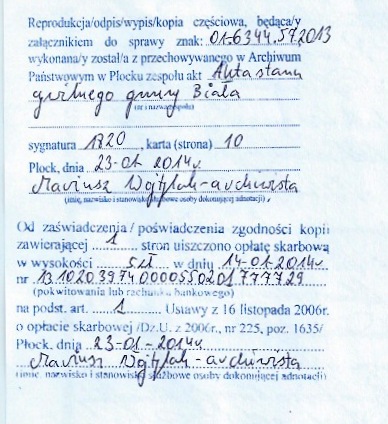 Reprodukcja/odpis/wypis/kopia częściowa, będąca/y
załącznikiem do sprawy znak: 01-6344.57.2013
wykonana/y został/a z przechowywanego w Archiwum
Państwowym w Płocku zespołu akt Akta stanu
cywilnego gminy Biała
(nr i nazwa zespołu)
sygnatura 1820, karta (strona) 10
Płock, dnia 23-01-2014r.
Mariusz - archiwista
(imię, nazwisko i stanowisko służbowe osoby dokonującej adnotacji)
Od zaświadczenia / poświadczenia zgodności kopii
zawierającej 1 stron uiszczono opłatę skarbową
w wysokości 5 zł w dniu 14-01-2014r
nr 13102039740000550201777729
(pokwitowania lub rachunku bankowego)
na podst. art. 1 Ustawy z 16 listopada 2006r.
o opłacie skarbowej /Dz.U. z 2006r., nr 225, poz. 1635/
Płock, dnia 23-01-2014r
Mariusz - archiwista
(imię, nazwisko i stanowisko służbowe osoby dokonującej adnotacji)